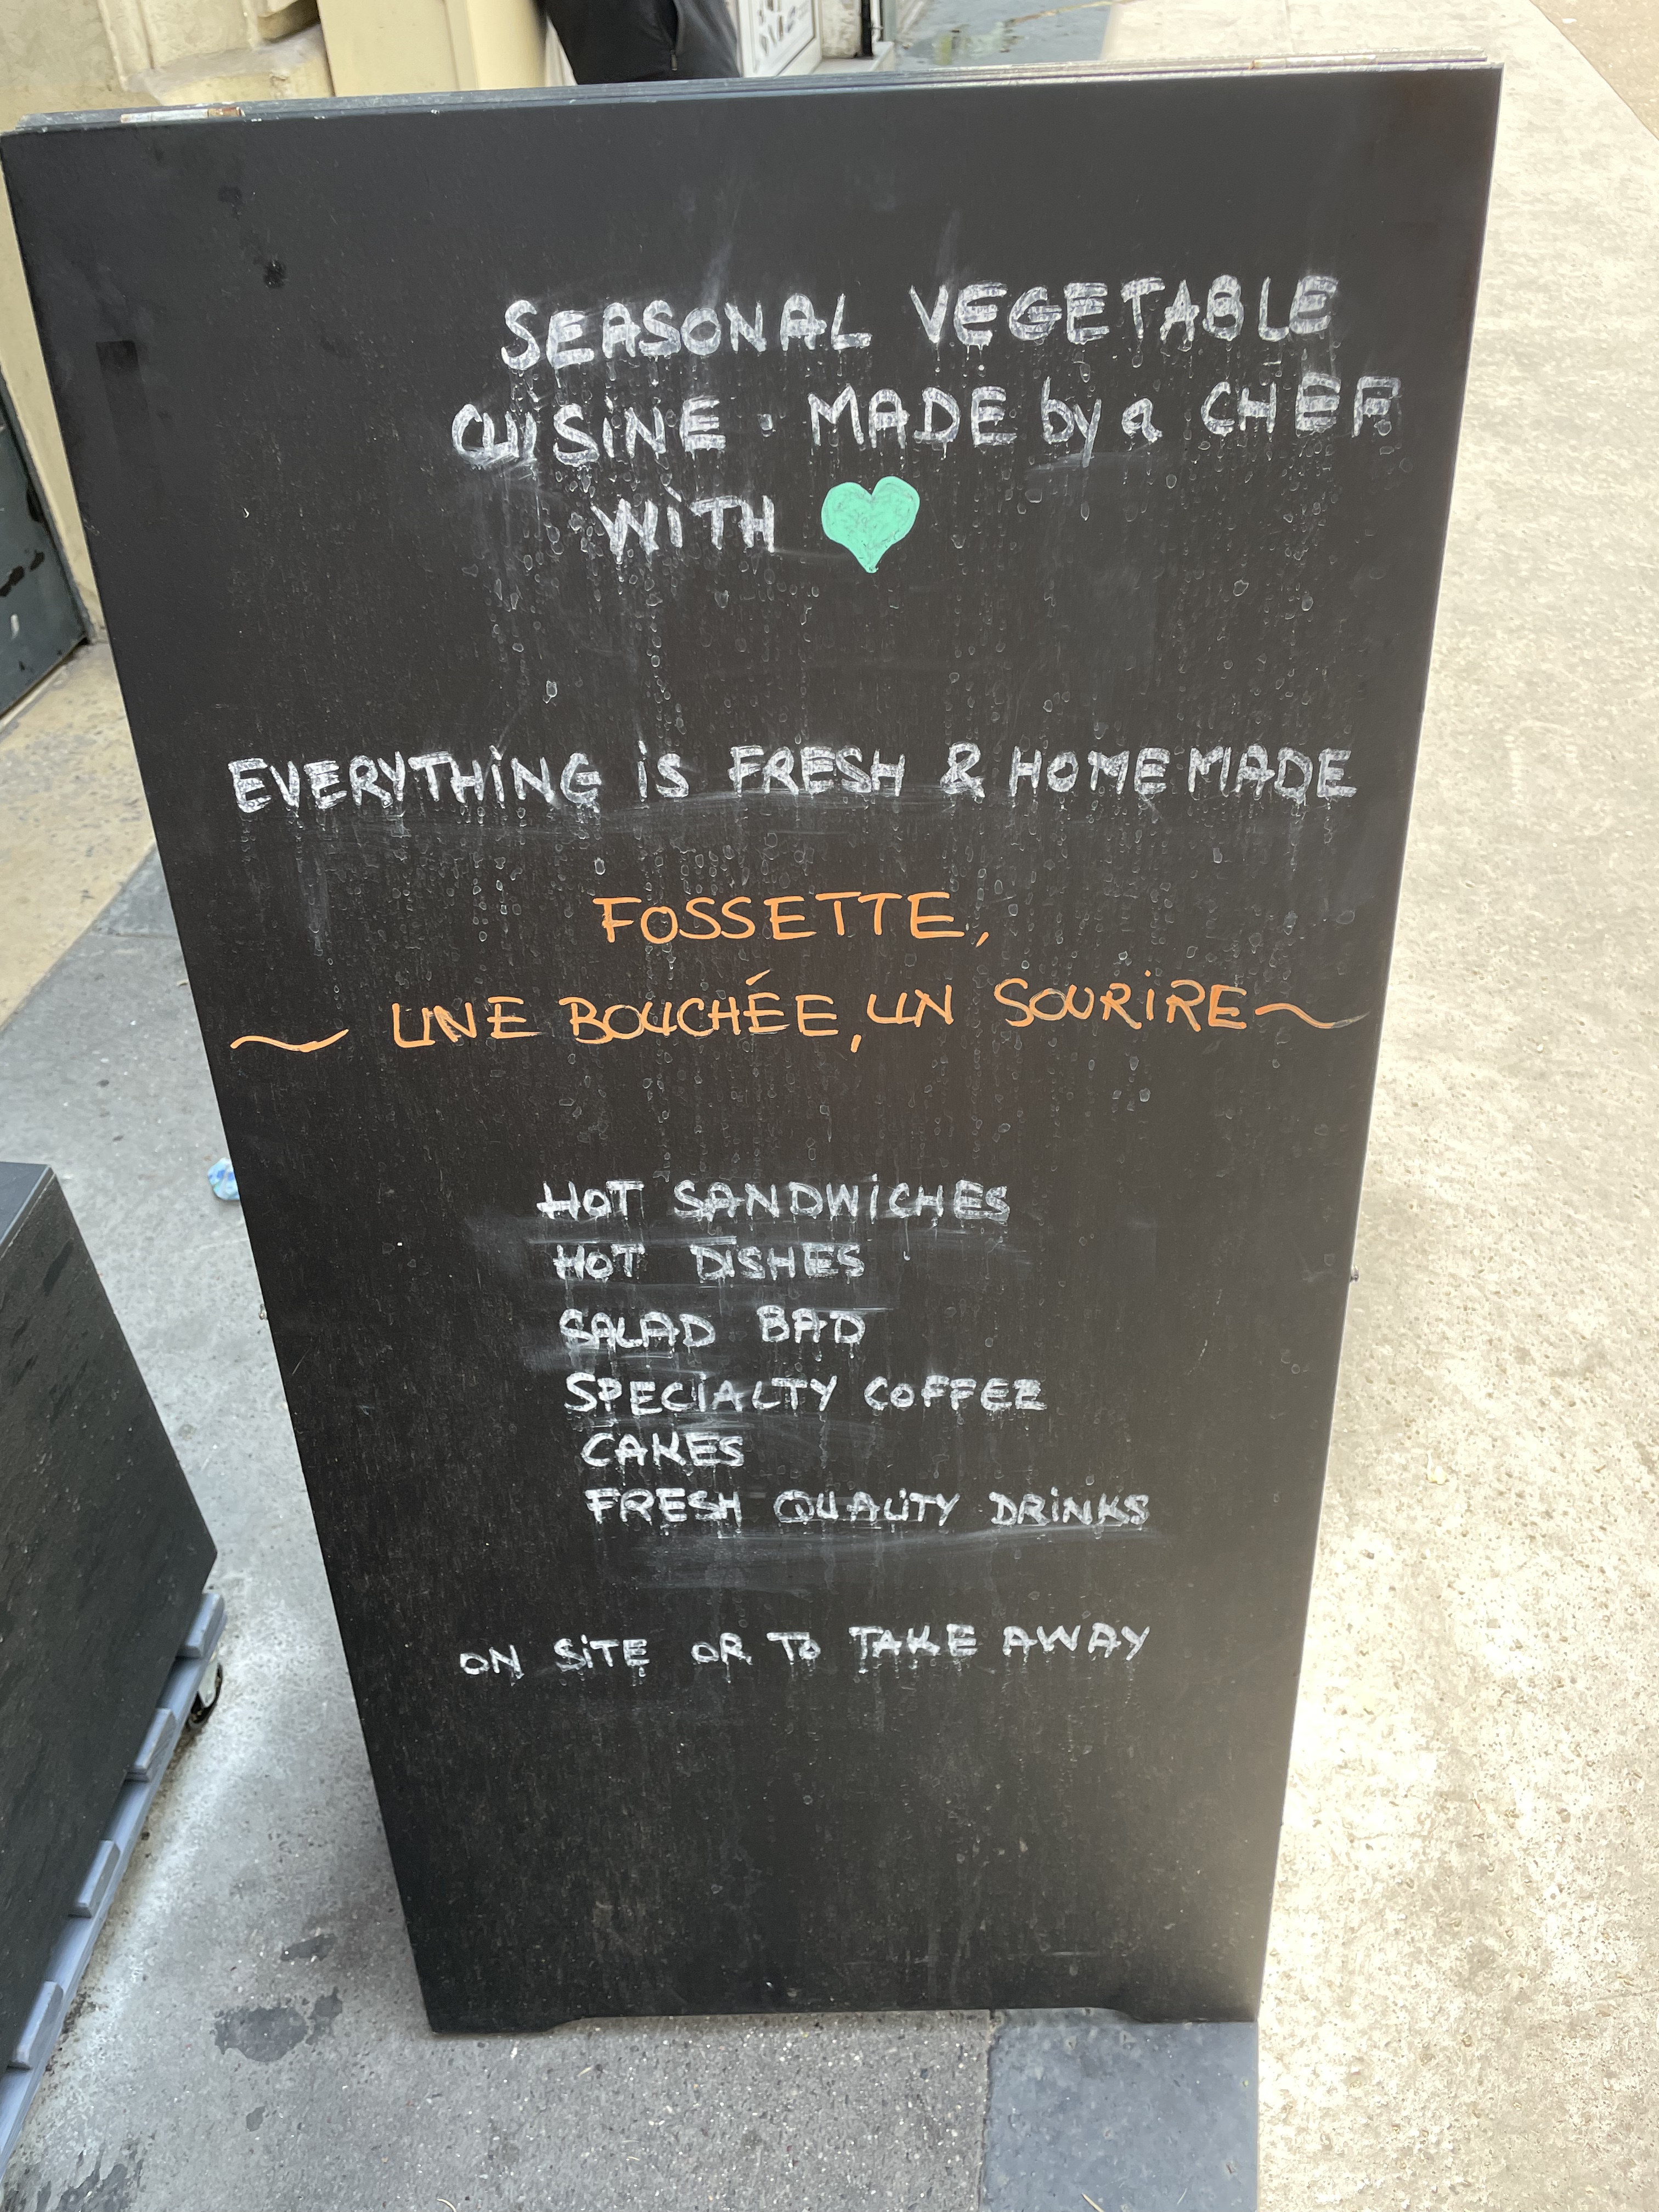 SEASONAL VEGETABLE
CUISINE · MADE by a CHEF
WITH
EVERYTHING is FRESH & HOMEMADE
FOSSETTE,
~ UNE BOUCHÉE, UN SOURIRE ~
HOT SANDWICHES
HOT DISHES
SALAD BAD
SPECIALTY COFFEE
CAKES
FRESH QUALITY DRINKS
ON SITE OR TO TAKE AWAY